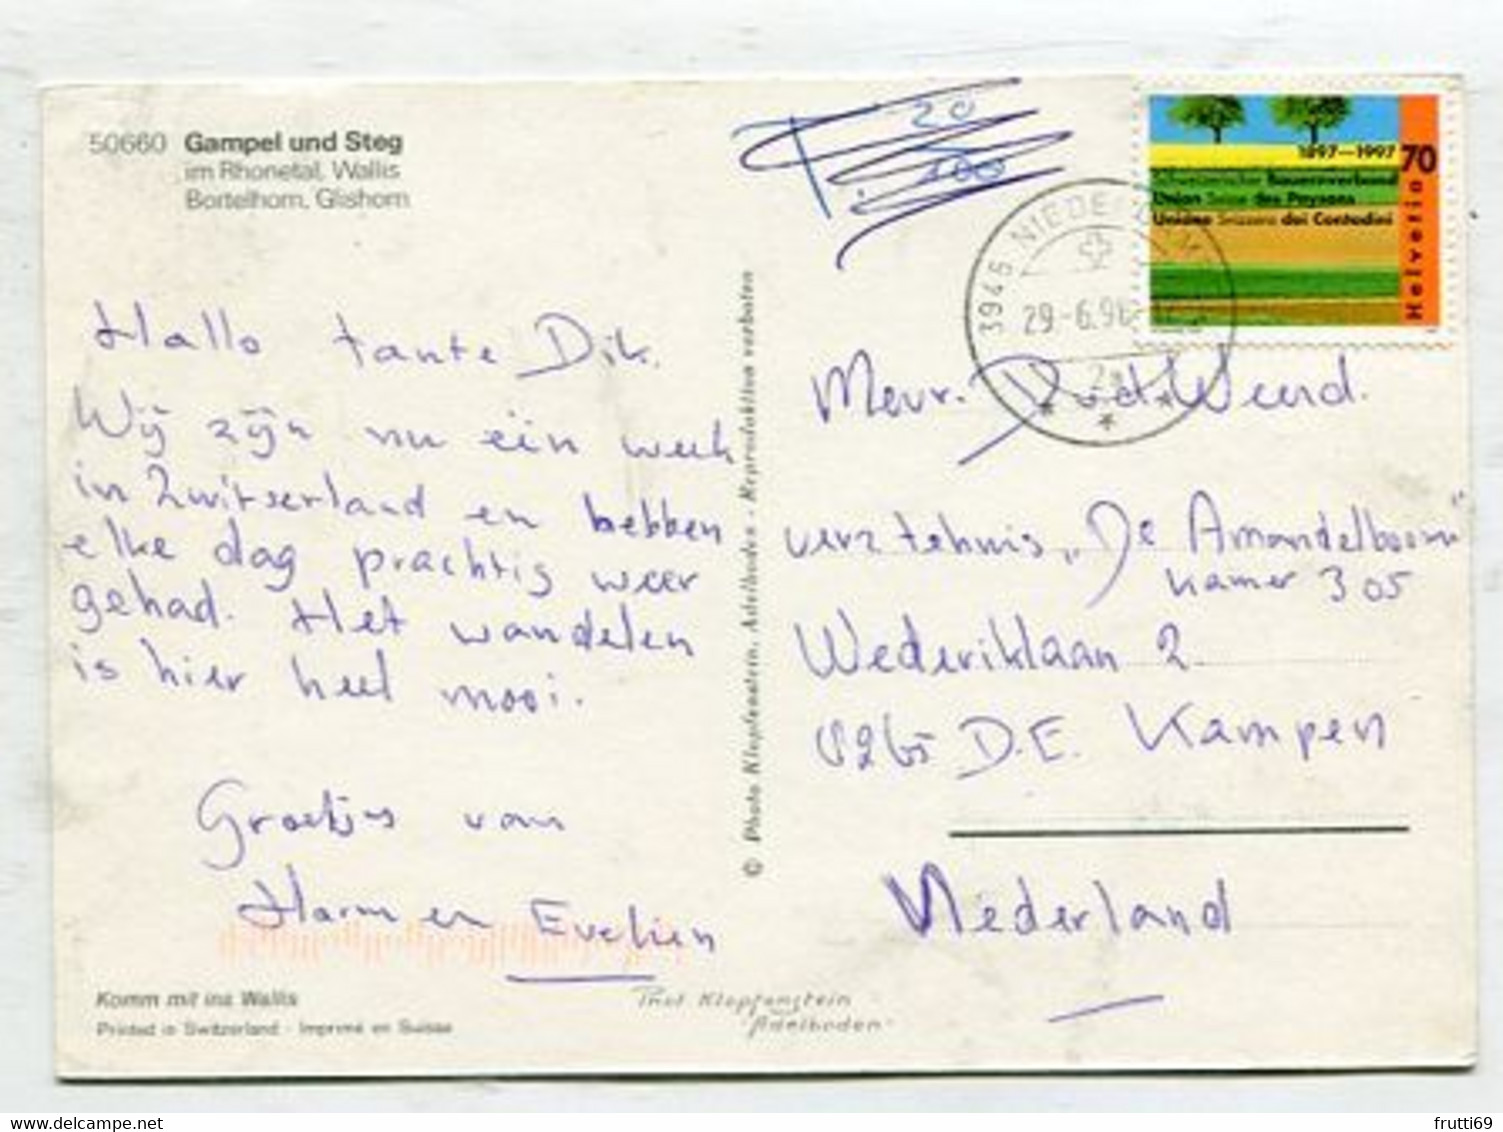 50660 Gampel und Steg
im Rhonetal, Wallis
Bortelhorn, Glishorn
Hallo tante Dik.
Wij zijn nu één week
in Zwitserland en hebben
elke dag prachtig weer
gehad. Het wandelen
is hier heel mooi.
Groetjes van
Harm en Evelien
Komm mit ins Wallis
Printed in Switzerland · Imprimé en Suisse
© Photo Klopfenstein, Adelboden - Reproduktion verboten
Phot. Klopfenstein
Adelboden
T. 20
100
3945
29.-6.98
2a
1897–1997 70
Schweizerischer Bauernverband
Union Suisse des Paysans
Unione Svizzera dei Contadini
Helvetia
Mevr.
verz tehuis „De Amandelboom"
kamer 305
Wederiklaan 2
8265 D.E. Kampen
Nederland
frutti69